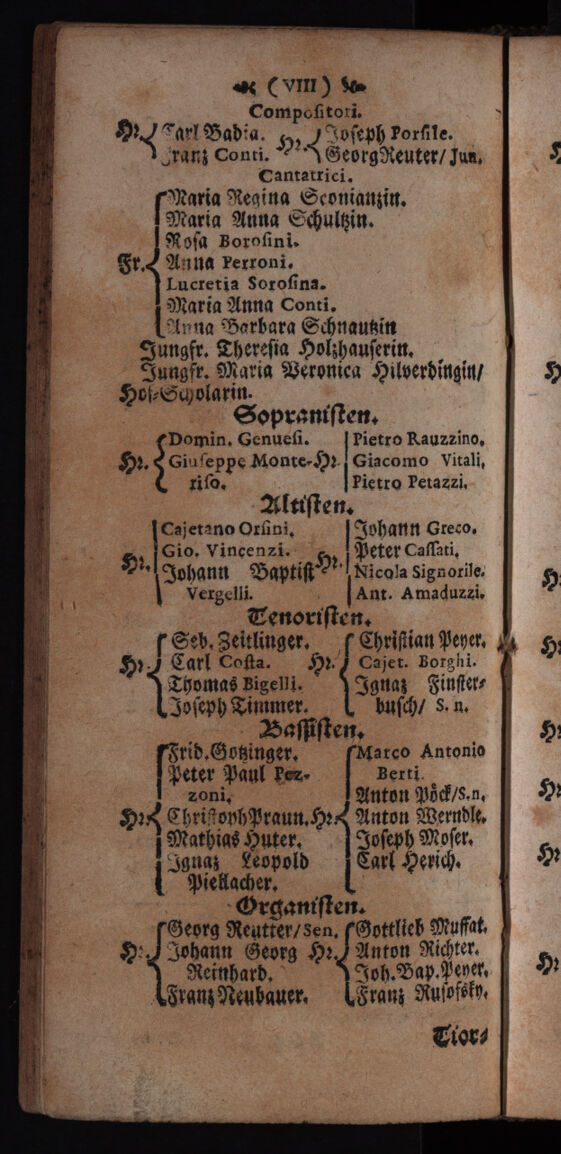 (VIII)
Compositori.
Hr. Carl Badia. Hr. Joseph Porsile.
Franz Conti. Georg Reuter/ Jun.
Cantatrici.
Maria Regina Sconianzin.
Maria Anna Schultzin.
Rosa Borosini.
Fr. Anna Perroni.
Lucretia Sorosina.
Maria Anna Conti.
Anna Barbara Schnautzin
Jungfr. Theresia Holzhauserin.
Jungfr. Maria Veronica Hilverdingin/
Hof-Scholarin.
Sopranisten.
Domin. Genuesi. Pietro Rauzzino.
Hr. Giuseppe Monte- Hr. Giacomo Vitali,
riso. Pietro Petazzi.
Altisten.
Cajetano Orsini. Johann Greco.
Gio. Vincenzi. Peter Cassati.
Hr. Johann Baptist Hr. Nicola Signorile.
Vergelli. Ant. Amaduzzi.
Tenoristen.
Seb. Zeitlinger. Christian Peyer.
Hr. Carl Costa. Hr. Cajet. Borghi.
Thomas Bigelli. Ignaz Finster-
Joseph Timmer. busch/ S. n.
Bassisten.
Frid. Gotzinger. Marco Antonio
Peter Paul Pez- Berti.
zoni. Anton Pöck/ S. n.
Hr. Christoph Praun. Hr. Anton Werndle.
Mathias Huter. Joseph Moser.
Ignaz Leopold Carl Herich.
Piellacher.
Organisten.
Georg Reutter/ Sen. Gottlieb Muffat.
Hr. Johann Georg Hr. Anton Richter.
Reinhard. Joh. Bap. Peyer.
Franz Neubauer. Franz Rusofsky.
Tior-